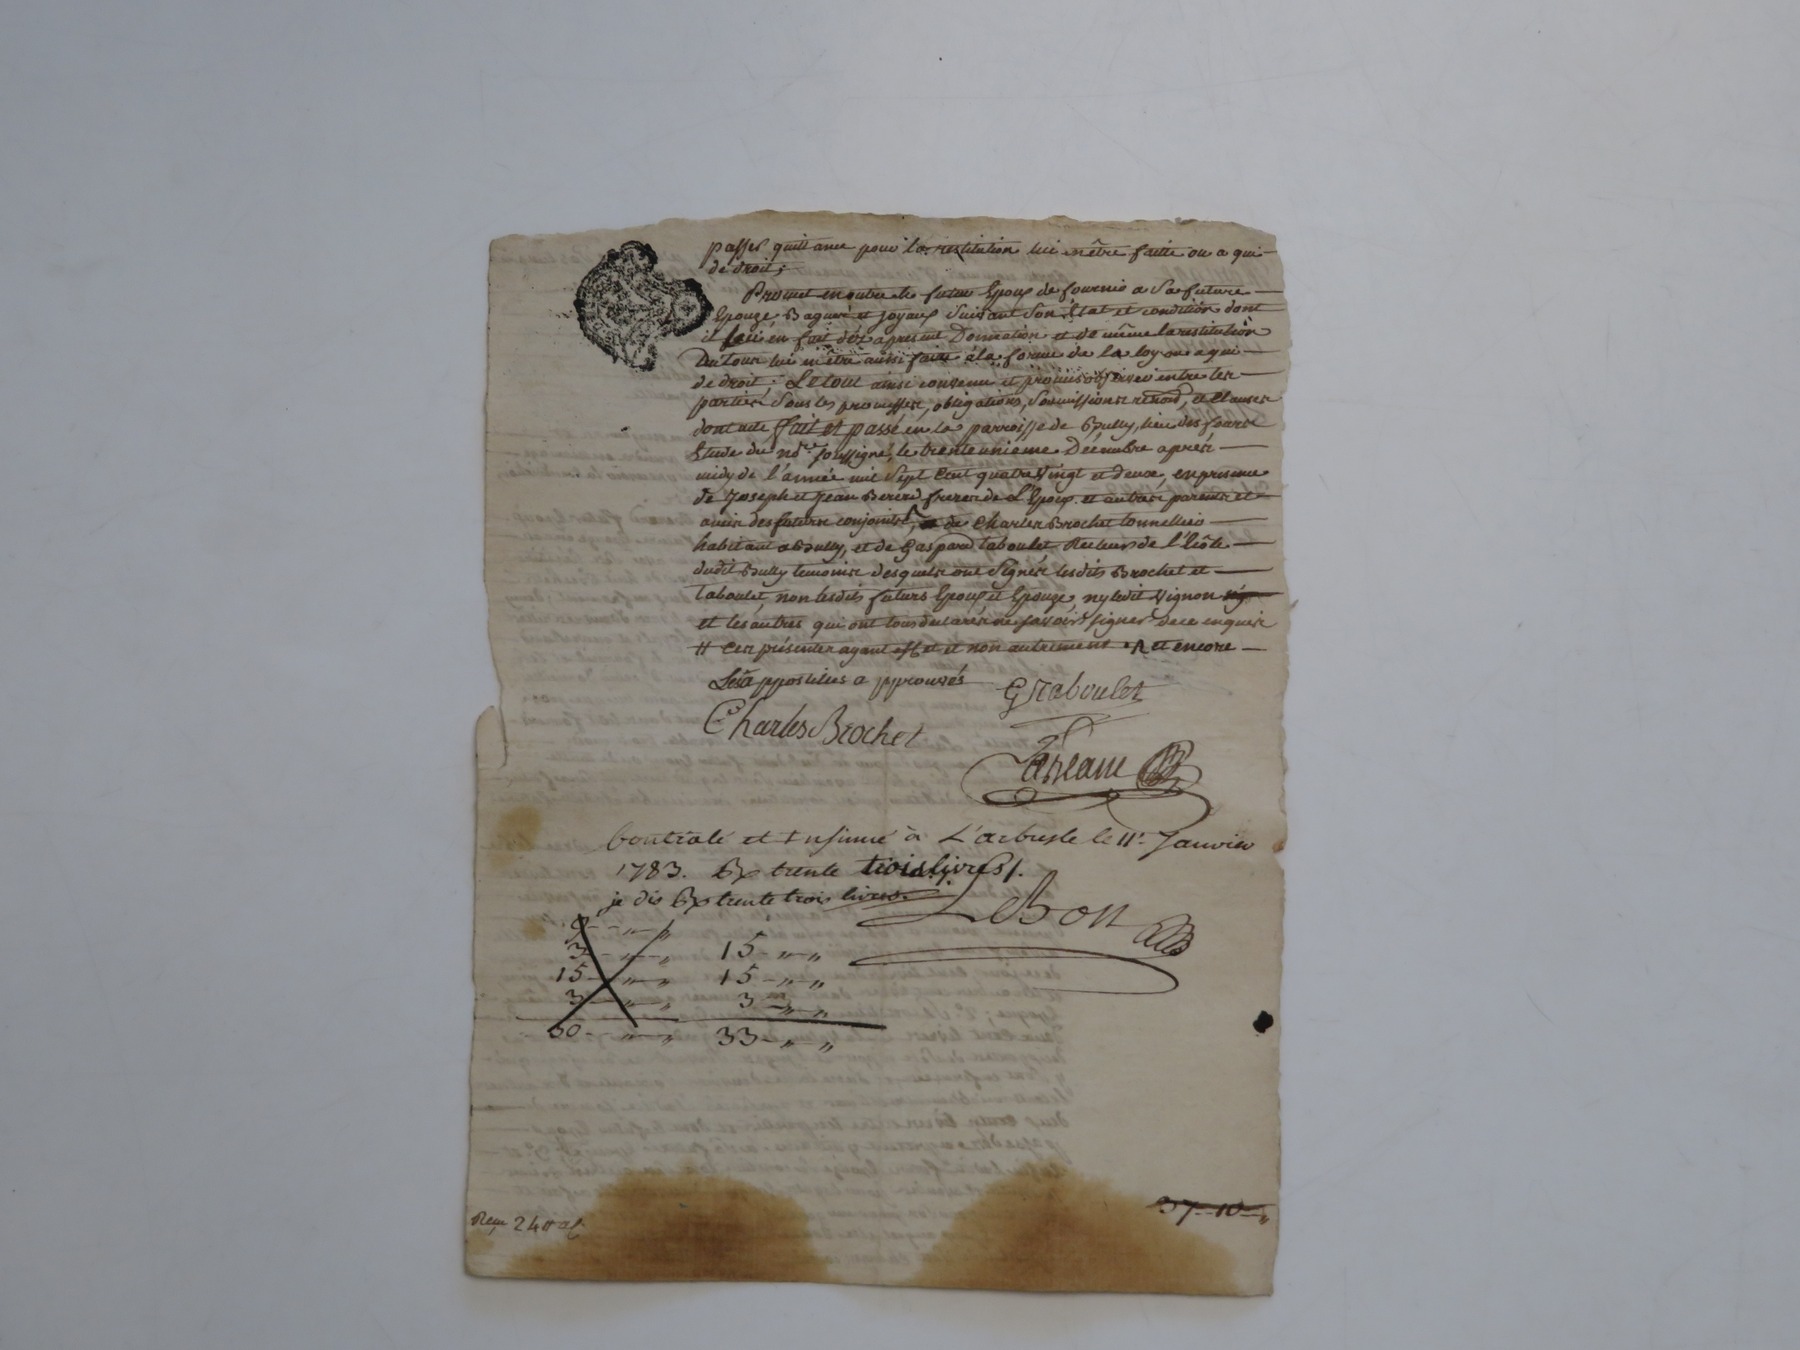 passer quittance pour la restitution lui en être faitte ou a qui
de droit;
Promet en outre le futur Epoux de fournir a Sa future
Epouze Bagues et joyaux Suivant Son Etat et condition dont
il lui en fait dès apresent Donnation et de même la restitution
Du tout lui en être aussi faitte à la forme de la loy ou a qui
de droit; Le tout ainsi convenu et promis observer entre les
parties Sous les promesses, obligations, Soumissions renond. et Clauses
dont acte fait et passé en la parroisse de Bully, lieu des fours
Etude du no.re soussigné, le trente unieme Décembre après
midy de l'année mil Sept Cent quatre Vingt et deux, en presence
de Joseph et Jean freres de L'Epoux et autres parents et
amis des futurs conjoints, de Charles Brochet tonnellier
habitant a Bully, et de Gaspard taboulet Recteur de l'Ecôle
dudit Bully temoins desquels ont Signés lesdits Brochet et
taboulet, non lesdits futurs Epoux et Epouze, ny ledit Vignon
et les autres qui ont tous declarés ne savoir signer de ce enquis
// Ces présentes ayant effet et non autrement et encore
Les appostilles approuvés
G Taboulet
Charles Brochet
Controlé et Insinué à L'arbresle le 11e Janvier
1783. Rx trente trois livres.
je dis Rx trente trois livres.
LeBon
9 - " - "
3 - " - " 15 - " "
15 - " - " 15 - " "
3 - " - " 3 - " "
30 - " - " 33 - " "
37 - 10 - "